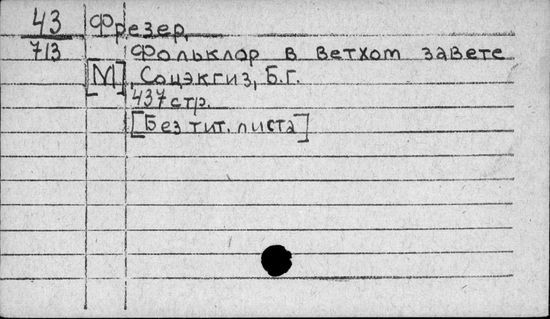 43 Фрезер,
713 Фольклор в ветхом завете
[М], Соцэкгиз, Б.Г.
437 стр.
[Без тит. листа]